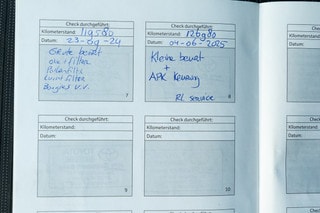 Check durchgeführt:
Kilometerstand: 119580
Datum: 23-09-24
Grote beurt
olie filter
Pollenfilter
Luchtfilter
7
Check durchgeführt:
Kilometerstand: 126900
Datum: 04-06-2025
Kleine beurt
+
APK Keuring
RL service
8
Check durchgeführt:
Kilometerstand:
Datum:
9
Check durchgeführt:
Kilometerstand:
Datum:
10
Check durchgeführt:
Check durchgeführt:
Kilom
Datum
Kilom
Datum